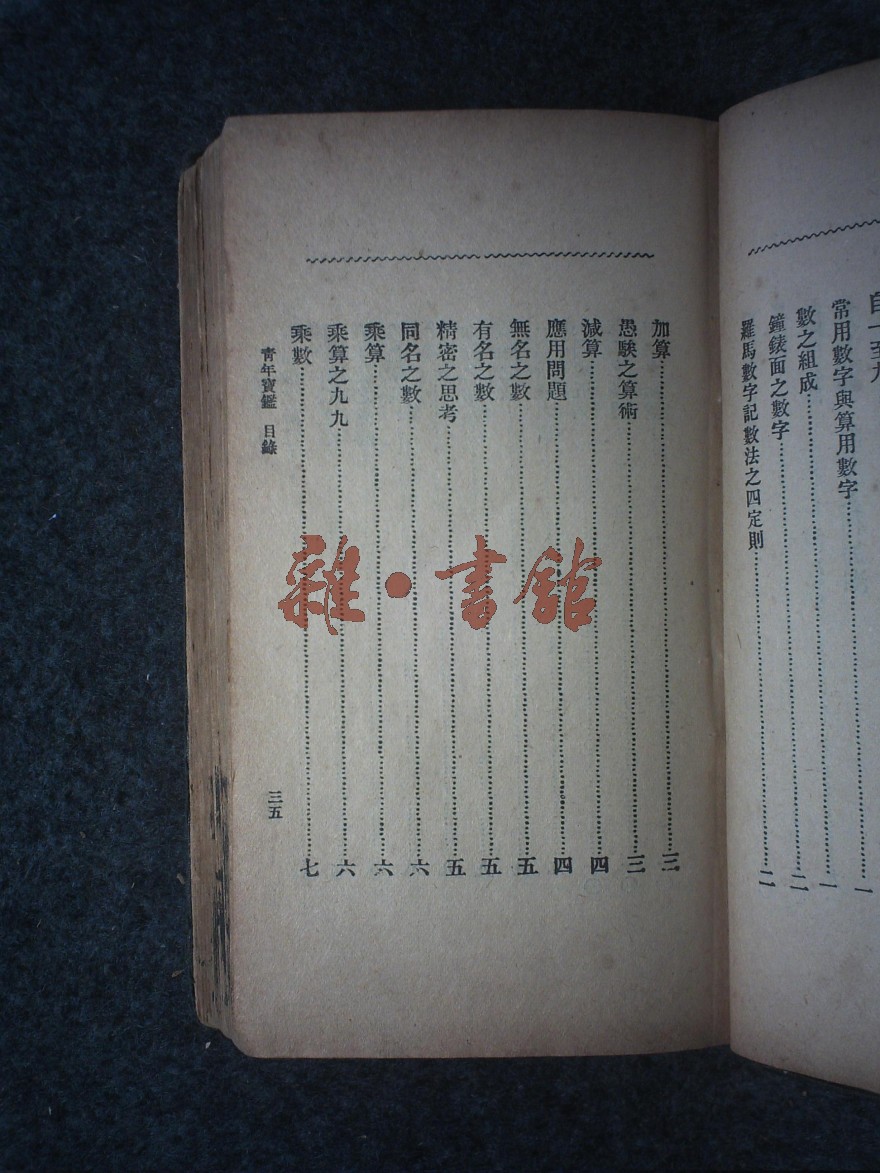 自一至九……一
常用數字與算用數字……一
數之組成……二
鐘錶面之數字
羅馬數字記數法之四定則……二
加算……三
愚騃之算術……三
減算……四
應用問題……四
無名之數……五
有名之數……五
精密之思考……五
同名之數……六
乘算……六
乘算之九九……六
乘數……七
青年寶鑑 目錄
三五
雜·書館